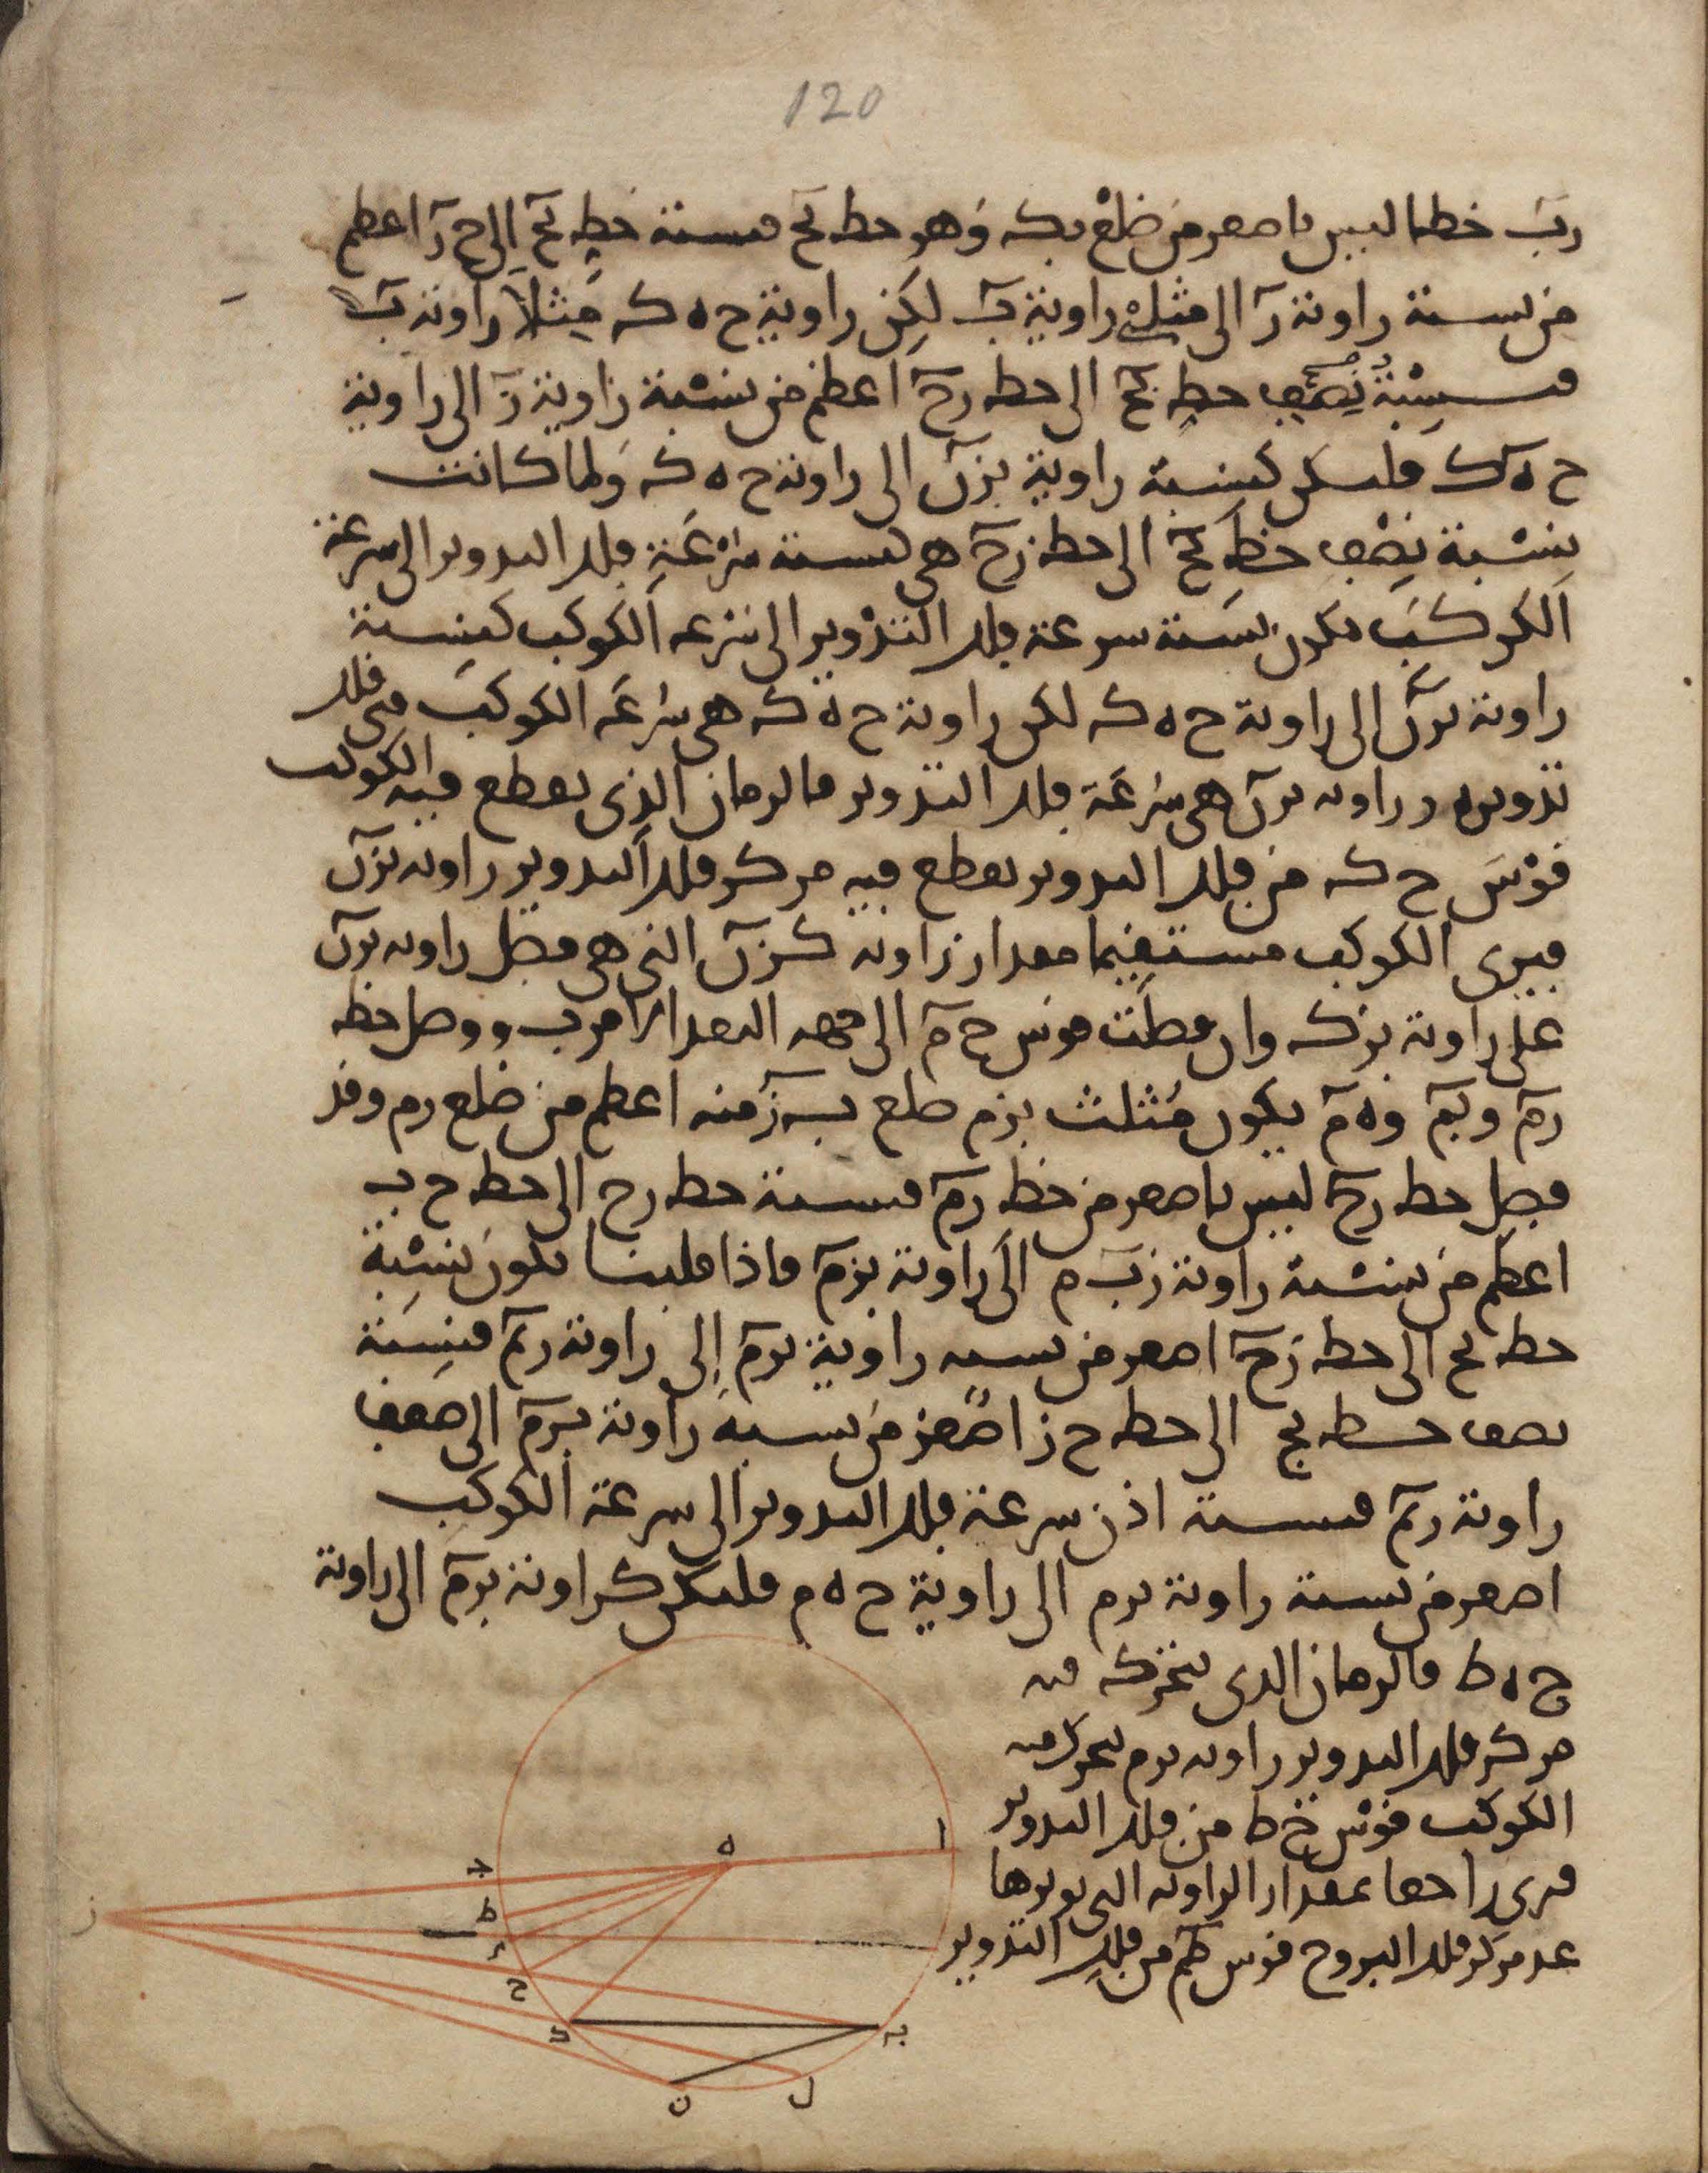 120
رب خطا ليس باصغر من ضلع بك وهو خط بح فنسبة خط بح الى ح ر اعظم
من نسبة زاوية ر الى مثلى زاوية ب لكن زاوية ح ه ك مثلا زاوية ب
فنسبة نصف خط بح الى خط رح اعظم من نسبة زاوية ر الى زاوية
ح ه ك فليكن كنسبة زاوية بزن الى زاوية ح ه ك ولما كانت
نسبة نصف خط بح الى خط زح هي كنسبة سرعة فلك التدوير الى سرعة
الكوكب تكون نسبة سرعة فلك التدوير الى سرعه الكوكب كنسبة
زاوية بزن الى زاوية ح ه ك لكن زاوية ح ه ك هي سرعة الكوكب في فلك
تدويره و زاويه بزن هي سرعة فلك التدوير فالزمان الذي يقطع فيه الكوكب
قوس ح ك من فلك التدوير يقطع فيه مركز فلك التدوير زاويه بزن
فيرى الكوكب مستقيما مقدار زاوية كزن التي هي فضل زاويه بزن
على زاوية بزك وان فصلت قوس ح م الى جهه البعد الاقرب و ووصل خط
رم و بم وه م يكون مثلث بزم ضلع ب ز منه اعظم من ضلع رم وقد
فصل خط رح ليس باصغر من خط رم فنسبة خط رح الى خط ح ب
اعظم من نسبة زاوية زب م الى زاوية بزم فاذا قلبنا تكون نسبة
خط بح الى خط زح اصغر من نسبه زاوية بزم الى زاوية ربم فنسبة
نصف خط بح الى خط ح ز اصغر من نسبة زاوية بزم الى ضعف
زاوية ربم فنسبة اذن سرعة فلك التدوير الى سرعة الكوكب
اصغر من نسبة زاوية بزم الى زاوية ح ه م فليكن كزاوية بزم الى زاوية
ح ه ط فالزمان الذي يتحرك فيه
مركز فلك التدوير زاويه بزم يتحرك فيه
الكوكب قوس ح ط من فلك التدوير
فيرى راجعا بمقدار الزاويه التي يوترها
عند مركز فلك البروج قوس طم من فلك التدوير
ا
ه
ج
ط
م
ح
ز
ك
ب
ن
ل